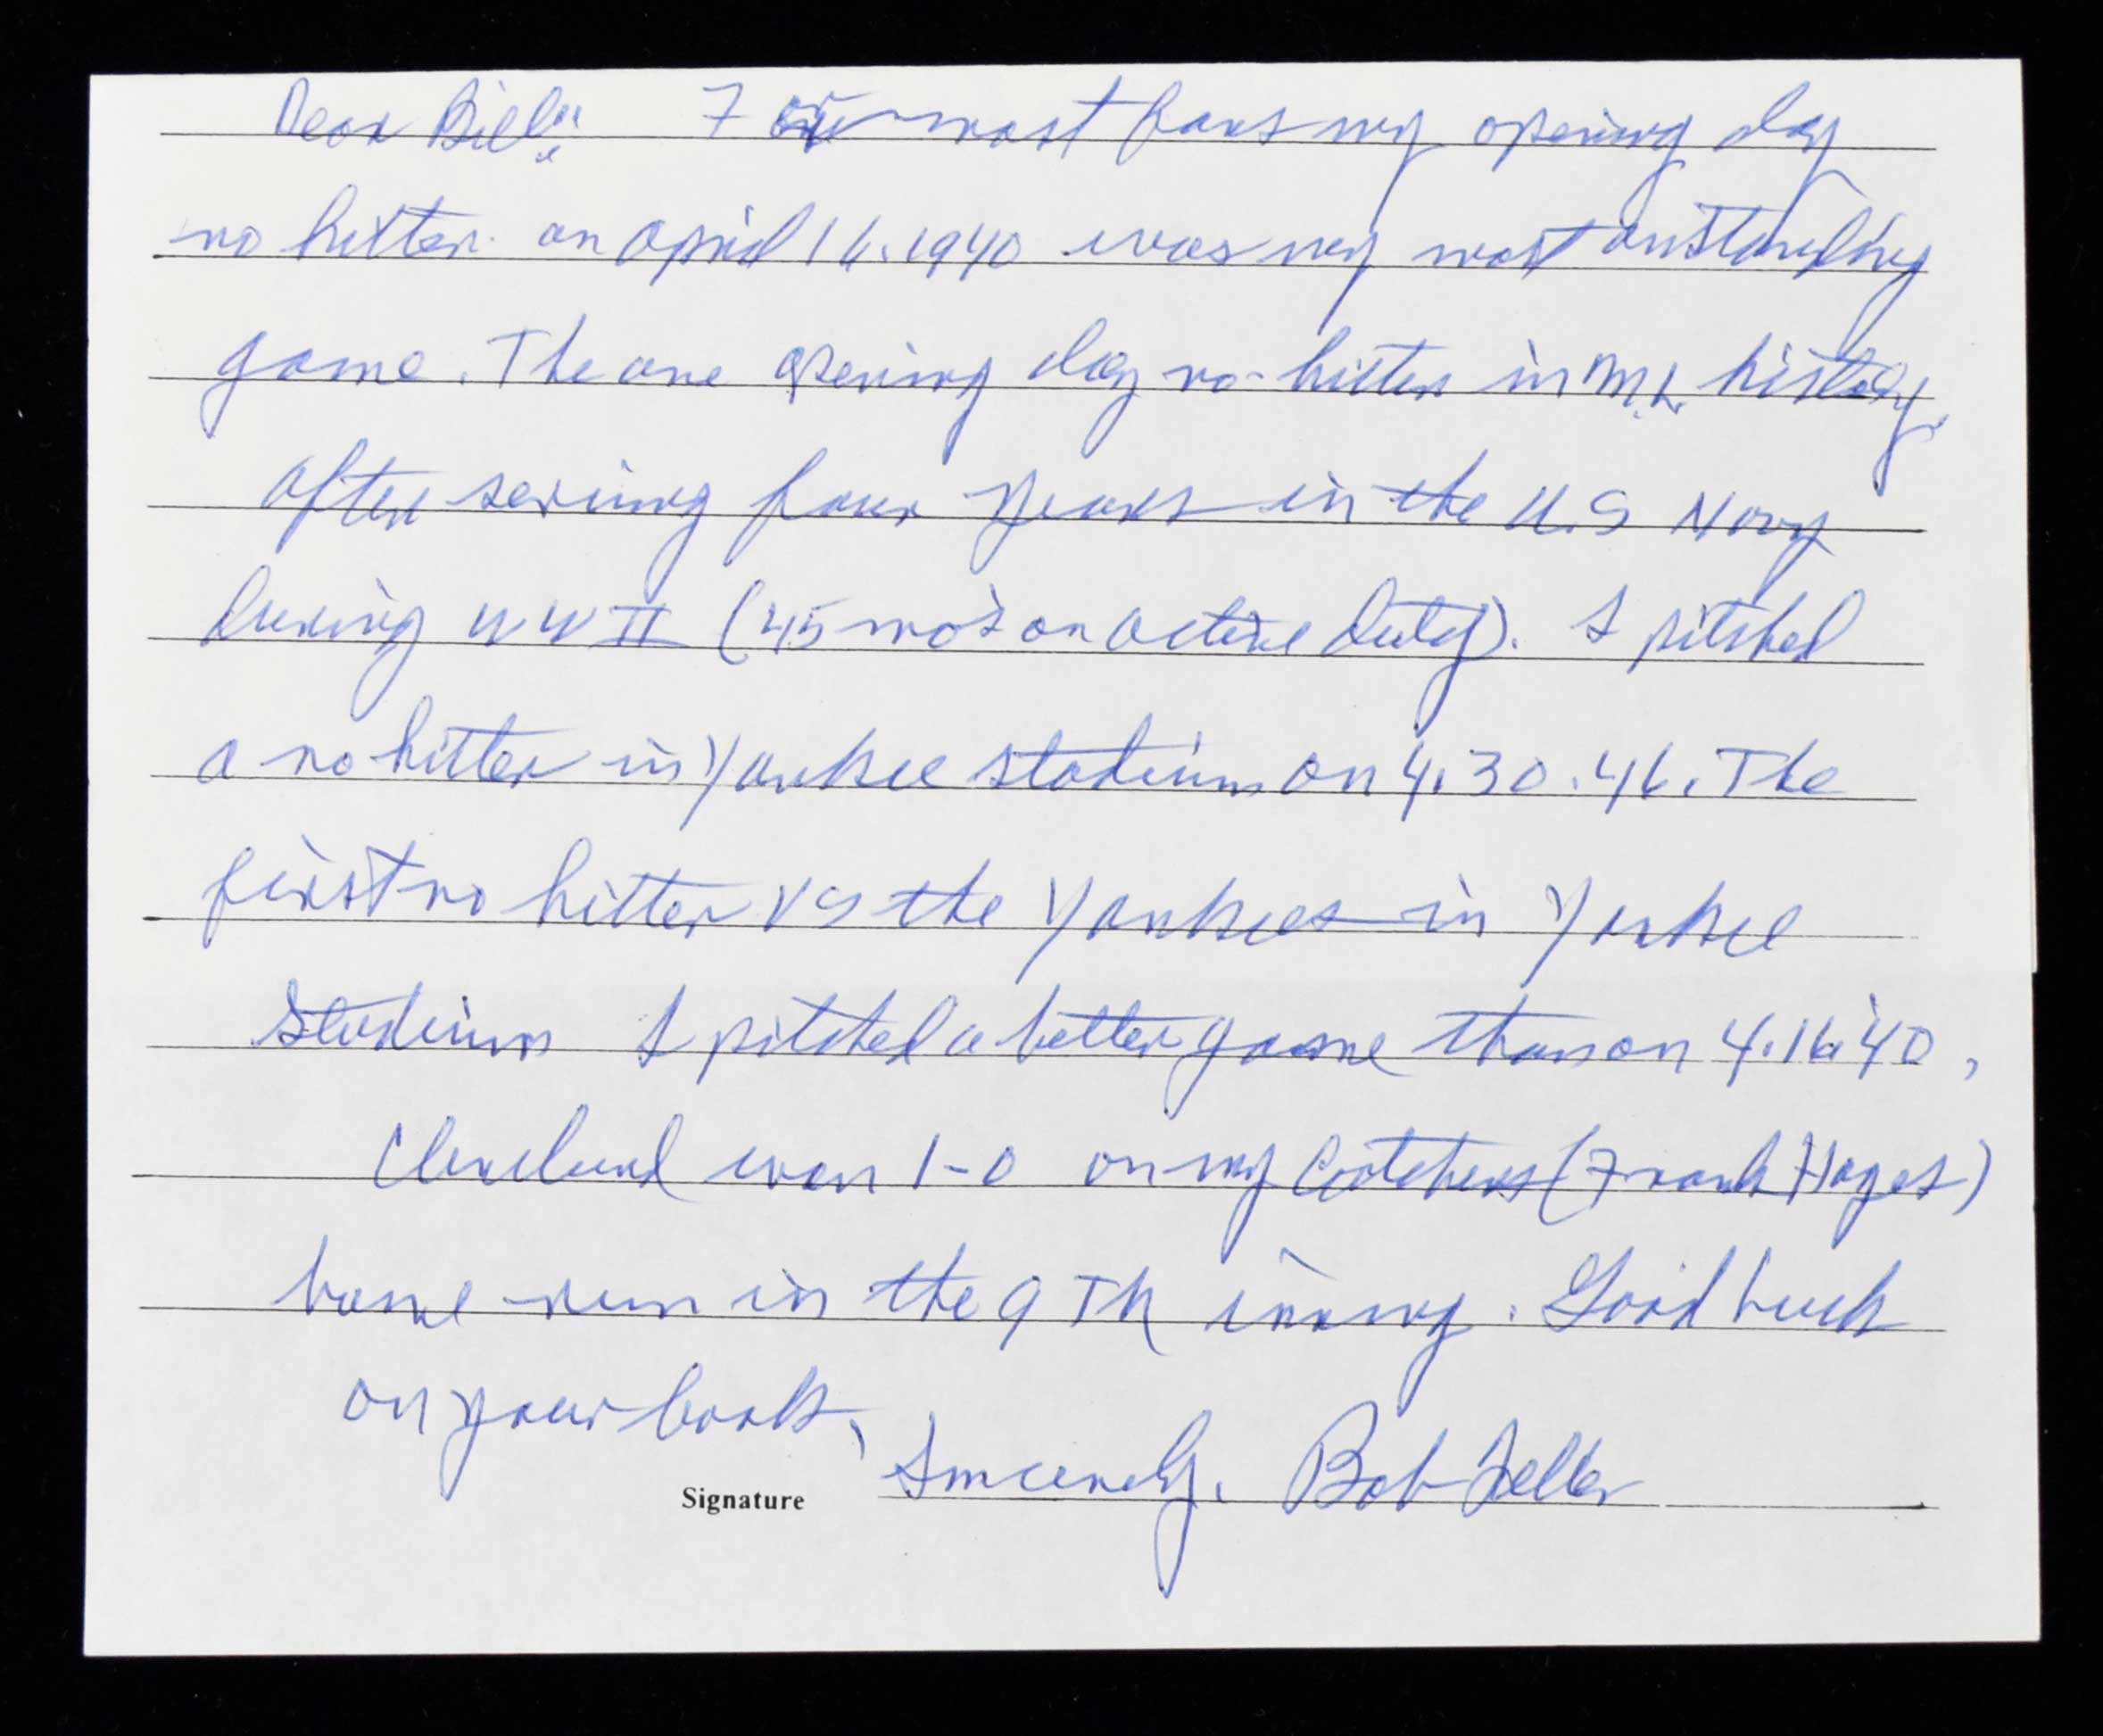 Dear Bill: For most fans my opening day
no hitter on April 16.1940 was my most outstanding
game. The one opening day no-hitter in M.L. history.
After serving four years in the U.S Navy
during WW II (45 mo's on active duty). I pitched
a no hitter in Yankee Stadium on 4.30.46. The
first no hitter vs the Yankees in Yankee
Stadium I pitched a better game than on 4.16.40,
Cleveland won 1-0 on my catchers (Frank Hayes)
home run in the 9 Th inning. Good Luck
on your book,
Signature Sincerely, Bob Feller